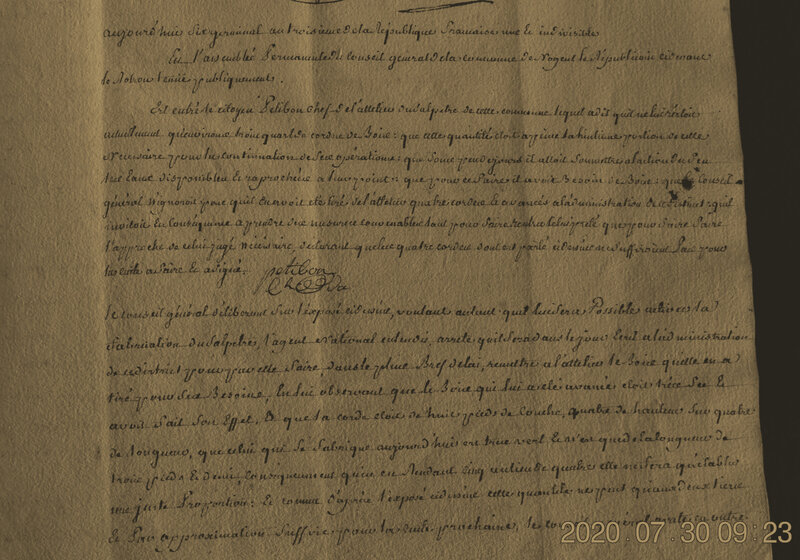 aujourd'huis six germinal an troisieme de la République francaise une et indivisible
En l'assemblée Permanente du Conseil general de la commune de Nogent le Républicain cidevant
le Rotrou tenüe publiquement.
Est entré le citoyen Petibon chef de l'attelier du salpetre de cette commune lequel a dit quil ne lui restoit
actuelement qu'environs trois quart de cordes de Bois: que cette quantité etoit a peine la huitieme portion de celle
Necessaire pour la continuation de ses opérations: que sous peu de jours il alloit soumettre a l'action du feu
des Eaux disponibles et raprochées a leur point: que pour ce faire il avoit Besoin de Bois: que le Conseil
général N'ignoroit pas quil en avoit eté tiré de l'attelier quatre cordes et avancés a l'administration de ce district: quil
invitoit En Conséquence a prendre des mesures convenables tant pour faire rentrer le bois prété que pour faire faire
l'approche de celui jugé Nécessaire, declarant que les quatre cordes dont est parlé ci dessus ne suffiroient Pas pour
la cuite a faire Et a signé. petibon
chef
Le conseil général délibérant sur l'exposé cidessus, voulant autant qu'il lui sera Possible activer la
fabrication du salpetre, l'agent National entendu, arrete quil sera dans le jour Ecrit a l'administration
de ce district pour par elle faire, dans le plus Bref delai, remettre a l'attelier le Bois qu'elle en a
tiré pour ses Besoins, En lui observant que le Bois qui lui a eté avancé etoit très sec Et
avoit fait son Effet, Et que la corde etoit de huit pieds de couche, quatre de hauteur sur quatre
de longueur, que celui qui se fabrique aujourd'huis est tres vert et n'est que de la longueur de
trois pieds et demi, consequemment qu'en en Rendant cinq au lieu de quatre elle ne fera qu'etablir
une juste Proportion: Et comme d'après l'exposé cidessus cette quantité ne peut qu'aux deux tiers
Et Par approximation suffire pour la cuite prochaine, le conseil général arrete en outre
2020.07.30 09:23